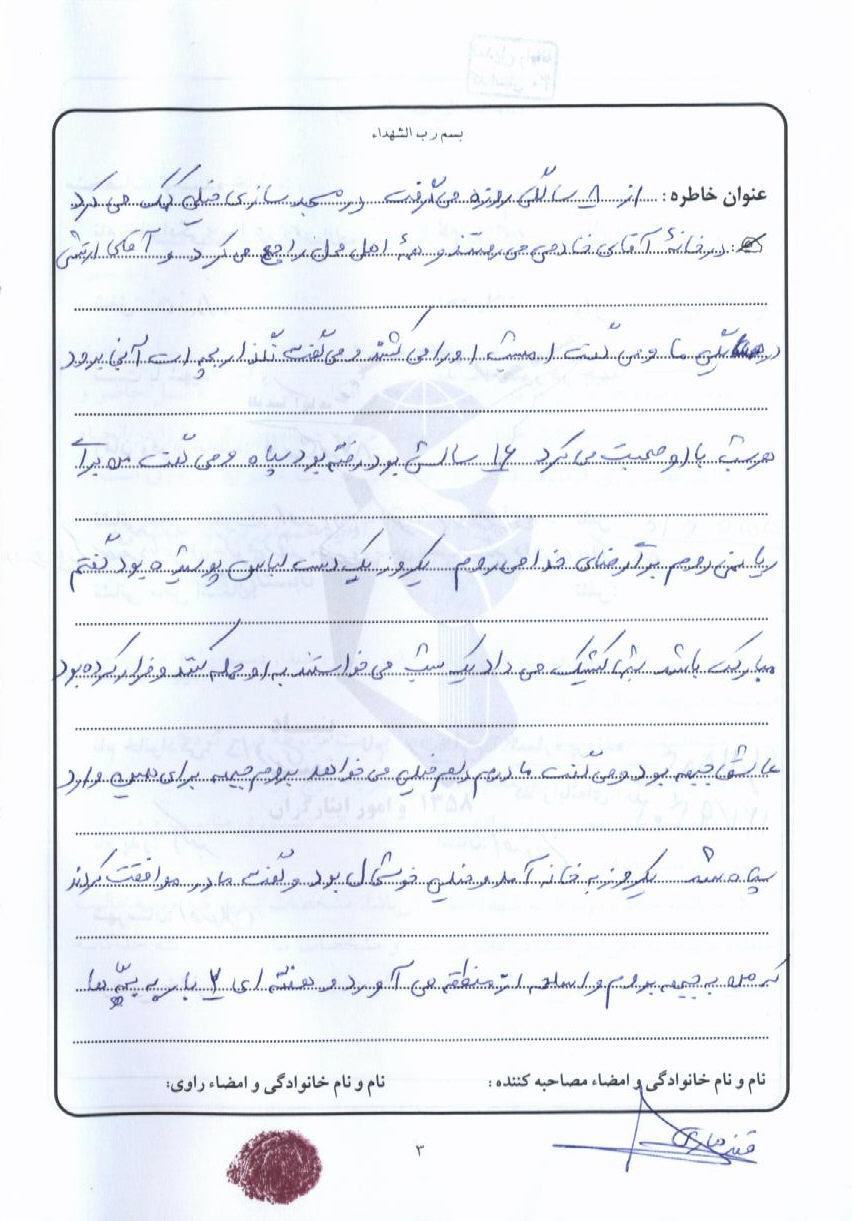 بسم رب الشهداء
عنوان خاطره: از ۸ سالگی روزه می‌گرفت در مسجد سازی خیلی کمک می کرد
در خانهٔ آقای خادمی می رفتند و همهٔ اهل محل را جمع می کرد و آقای ارتشی
در همسایگی ما و می گفت امشب او را می کشند و می گفت نگذار بچه ات آنجا برود
هر شب با او صحبت می کرد ۱۶ سالش بود رفته بود سپاه و می گفت من برای
ریا نمی روم برای رضای خدا می روم یکروز یک دست لباس پوشیده بود گفتم
مبارک باشد شبها کشیک می داد یک شب می خواستند به او حمله کنند و فرار کرده بود
عاشق جبهه بود و می گفت مادرم دلم خیلی می خواهد بروم جبهه برای همین وارد
سپاه شد یکروز به خانه آمد و خیلی خوشحال بود و گفت مادر موافقت کردند
که من به جبهه بروم و اسلحه از منطقه می آورد و هفته ای ۲ بار به بچّه ها
نام و نام خانوادگی و امضاء مصاحبه کننده: نام و نام خانوادگی و امضاء راوی:
۳